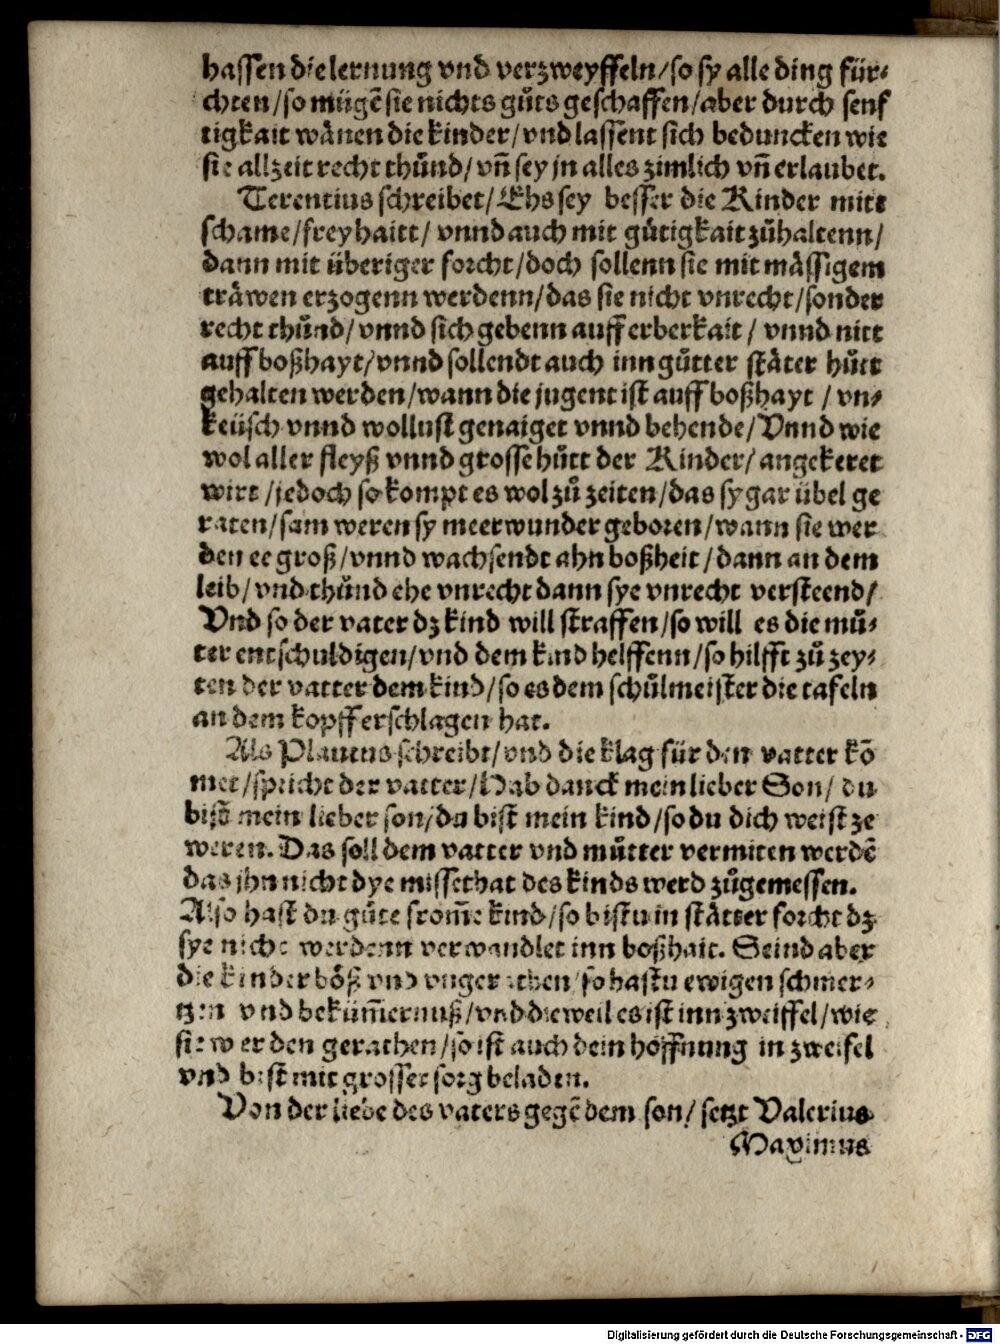 hassen die lernung vnd verzweyffeln/so sy alle ding für⸗
chten/so mügẽ sie nichts gůts geschaffen/aber durch senf
tigkait wänen die kinder/vnd lassent sich beduncken wie
sie allzeit recht thůnd/vñ sey jn alles zimlich vñ erlaubet.
Terentius schreibet/Ehs sey besser die Kinder mitt
schame/freyhaitt/vnnd auch mit gůtigkait zůhaltenn/
dann mit überiger forcht/doch sollenn sie mit mässigem
träwen erzogenn werdenn/das sie nicht vnrecht/sonder
recht thůnd/vnnd sich gebenn auff erberkait/vnnd nitt
auff boßhayt/vnnd sollendt auch inn gůtter stäter hůtt
gehalten werden/wann die jugent ist auff boßhayt/vn⸗
keüsch vnnd wollust genaiget vnnd behende/Vnnd wie
wol aller fleyß vnnd grosse hůtt der Kinder/angekeret
wirt/jedoch so kompt es wol zů zeiten/das sy gar übel ge
raten/sam weren sy meerwunder geboren/wann sie wer
den ee groß/vnnd wachsendt ahn boßheit/dann an dem
leib/vnd thůnd ehe vnrecht dann sye vnrecht versteend/
Vnd so der vater dz kind will straffen/so will es die mů⸗
ter entschuldigen/vnd dem kind helffenn/so hilfft zů zey⸗
ten der vatter dem kind/so es dem schůlmeister die tafeln
an dem kopff erschlagen hat.
Als Plautus schreibt/vnd die klag für den vatter kõ
met/spricht der vatter/Hab danck mein lieber Son/du
bist mein lieber son/du bist mein kind/so du dich weist ze
weren. Das soll dem vatter vnd můtter vermiten werdẽ
das jhn nicht dye missethat des kinds werd zůgemessen.
Also hast du gůte from̃e kind/so bistu in stätter forcht dz
sye nicht werdenn verwandlet inn boßhait. Seind aber
die kinder böß vnd vngerathen/so hastu ewigen schmer⸗
tzen vnd beküm̃ernuß/vnd dieweil es ist inn zweiffel/wie
sie werden gerathen/so ist auch dein hoffnung in zweifel
vnd bist mit grosser sorg beladen.
Von der liebe des vaters gegẽ dem son/setzt Valerius
Maximus
Digitalisierung gefördert durch die Deutsche Forschungsgemeinschaft - DFG